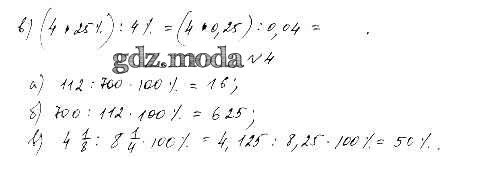 в) (4 • 25%) : 4% = (4 • 0,25) : 0,04 = .
gdz.moda №4
а) 112 : 700 · 100% = 16;
б) 700 : 112 · 100% = 625;
в) 4 1/8 : 8 1/4 · 100% = 4,125 : 8,25 · 100% = 50%.